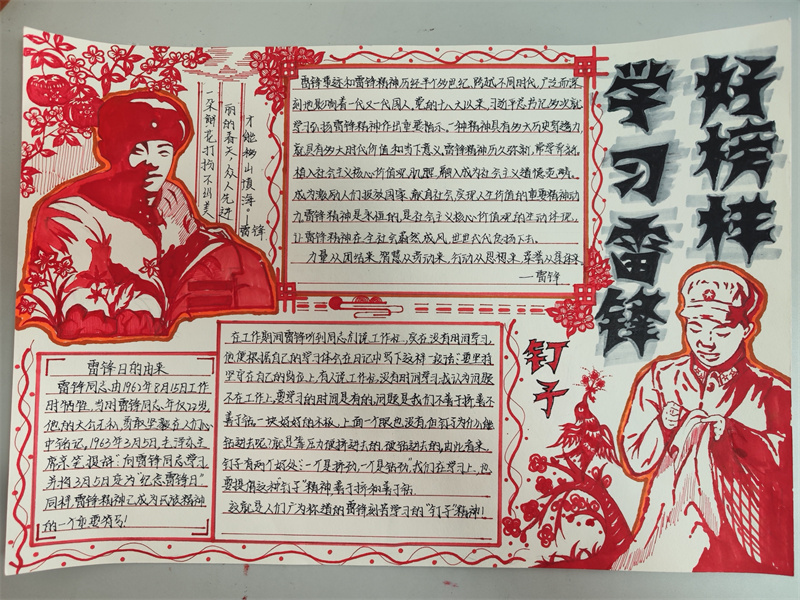 学习雷锋
好榜样
一朵鲜花打扮不出美
丽的春天,众人先进
才能移山填海。
雷锋
雷锋事迹和雷锋精神历经半个多世纪,跨越不同时代,广泛而深
刻地影响着一代又一代国人,党的十八大以来,习近平总书记多次就
学习弘扬雷锋精神作出重要指示,一种精神具有多大历史穿透力,
就具有多大时代价值和当下意义,雷锋精神历久弥新,
植入社会主义核心价值观肌理,融入成为社会主义道德
成为激励人们报效国家,献身社会,实现人生价值的重要精神动
力雷锋精神是永恒的,是社会主义核心价值观的生动体现,
让雷锋精神在全社会蔚然成风,世世代代弘扬下去。
力量从团结来,智慧从劳动来,行动从思想来,荣誉从集体来
——雷锋
雷锋日的由来
雷锋同志由1962年8月15日工作
时牺牲,当时雷锋同志年仅22岁
他的大公无私,勇敢坚毅在人们心
中铭记,1963年3月5日,毛泽东主
席亲笔提辞"向雷锋同志学习
并将3月5日定为"纪念雷锋日"
同样,雷锋精神已成为民族精神
的一个重要符号!
钉子
在工作期间雷锋听到同志们说工作忙,实在没有时间学习,
他便根据自己的学习体会在日记中写下这样一段话:要坚持
坚守在自己的岗位上,有人说工作忙,没有时间学习,我认为问题
不在工作上,要学习的时间是有的,问题是我们不善于挤,善不
善于钻,一块好好的木板,上面一个眼也没有,但钉子为什么能
钻进去呢?就是靠压力硬挤进去的,硬钻进去的,由此看来,
钉子有两个好处:一个是挤劲,一个是钻劲,"我们在学习上,也
要提倡这种"钉子"精神,善于挤和善于钻.
这就是人们广为称颂的雷锋刻苦学习的"钉子"精神!